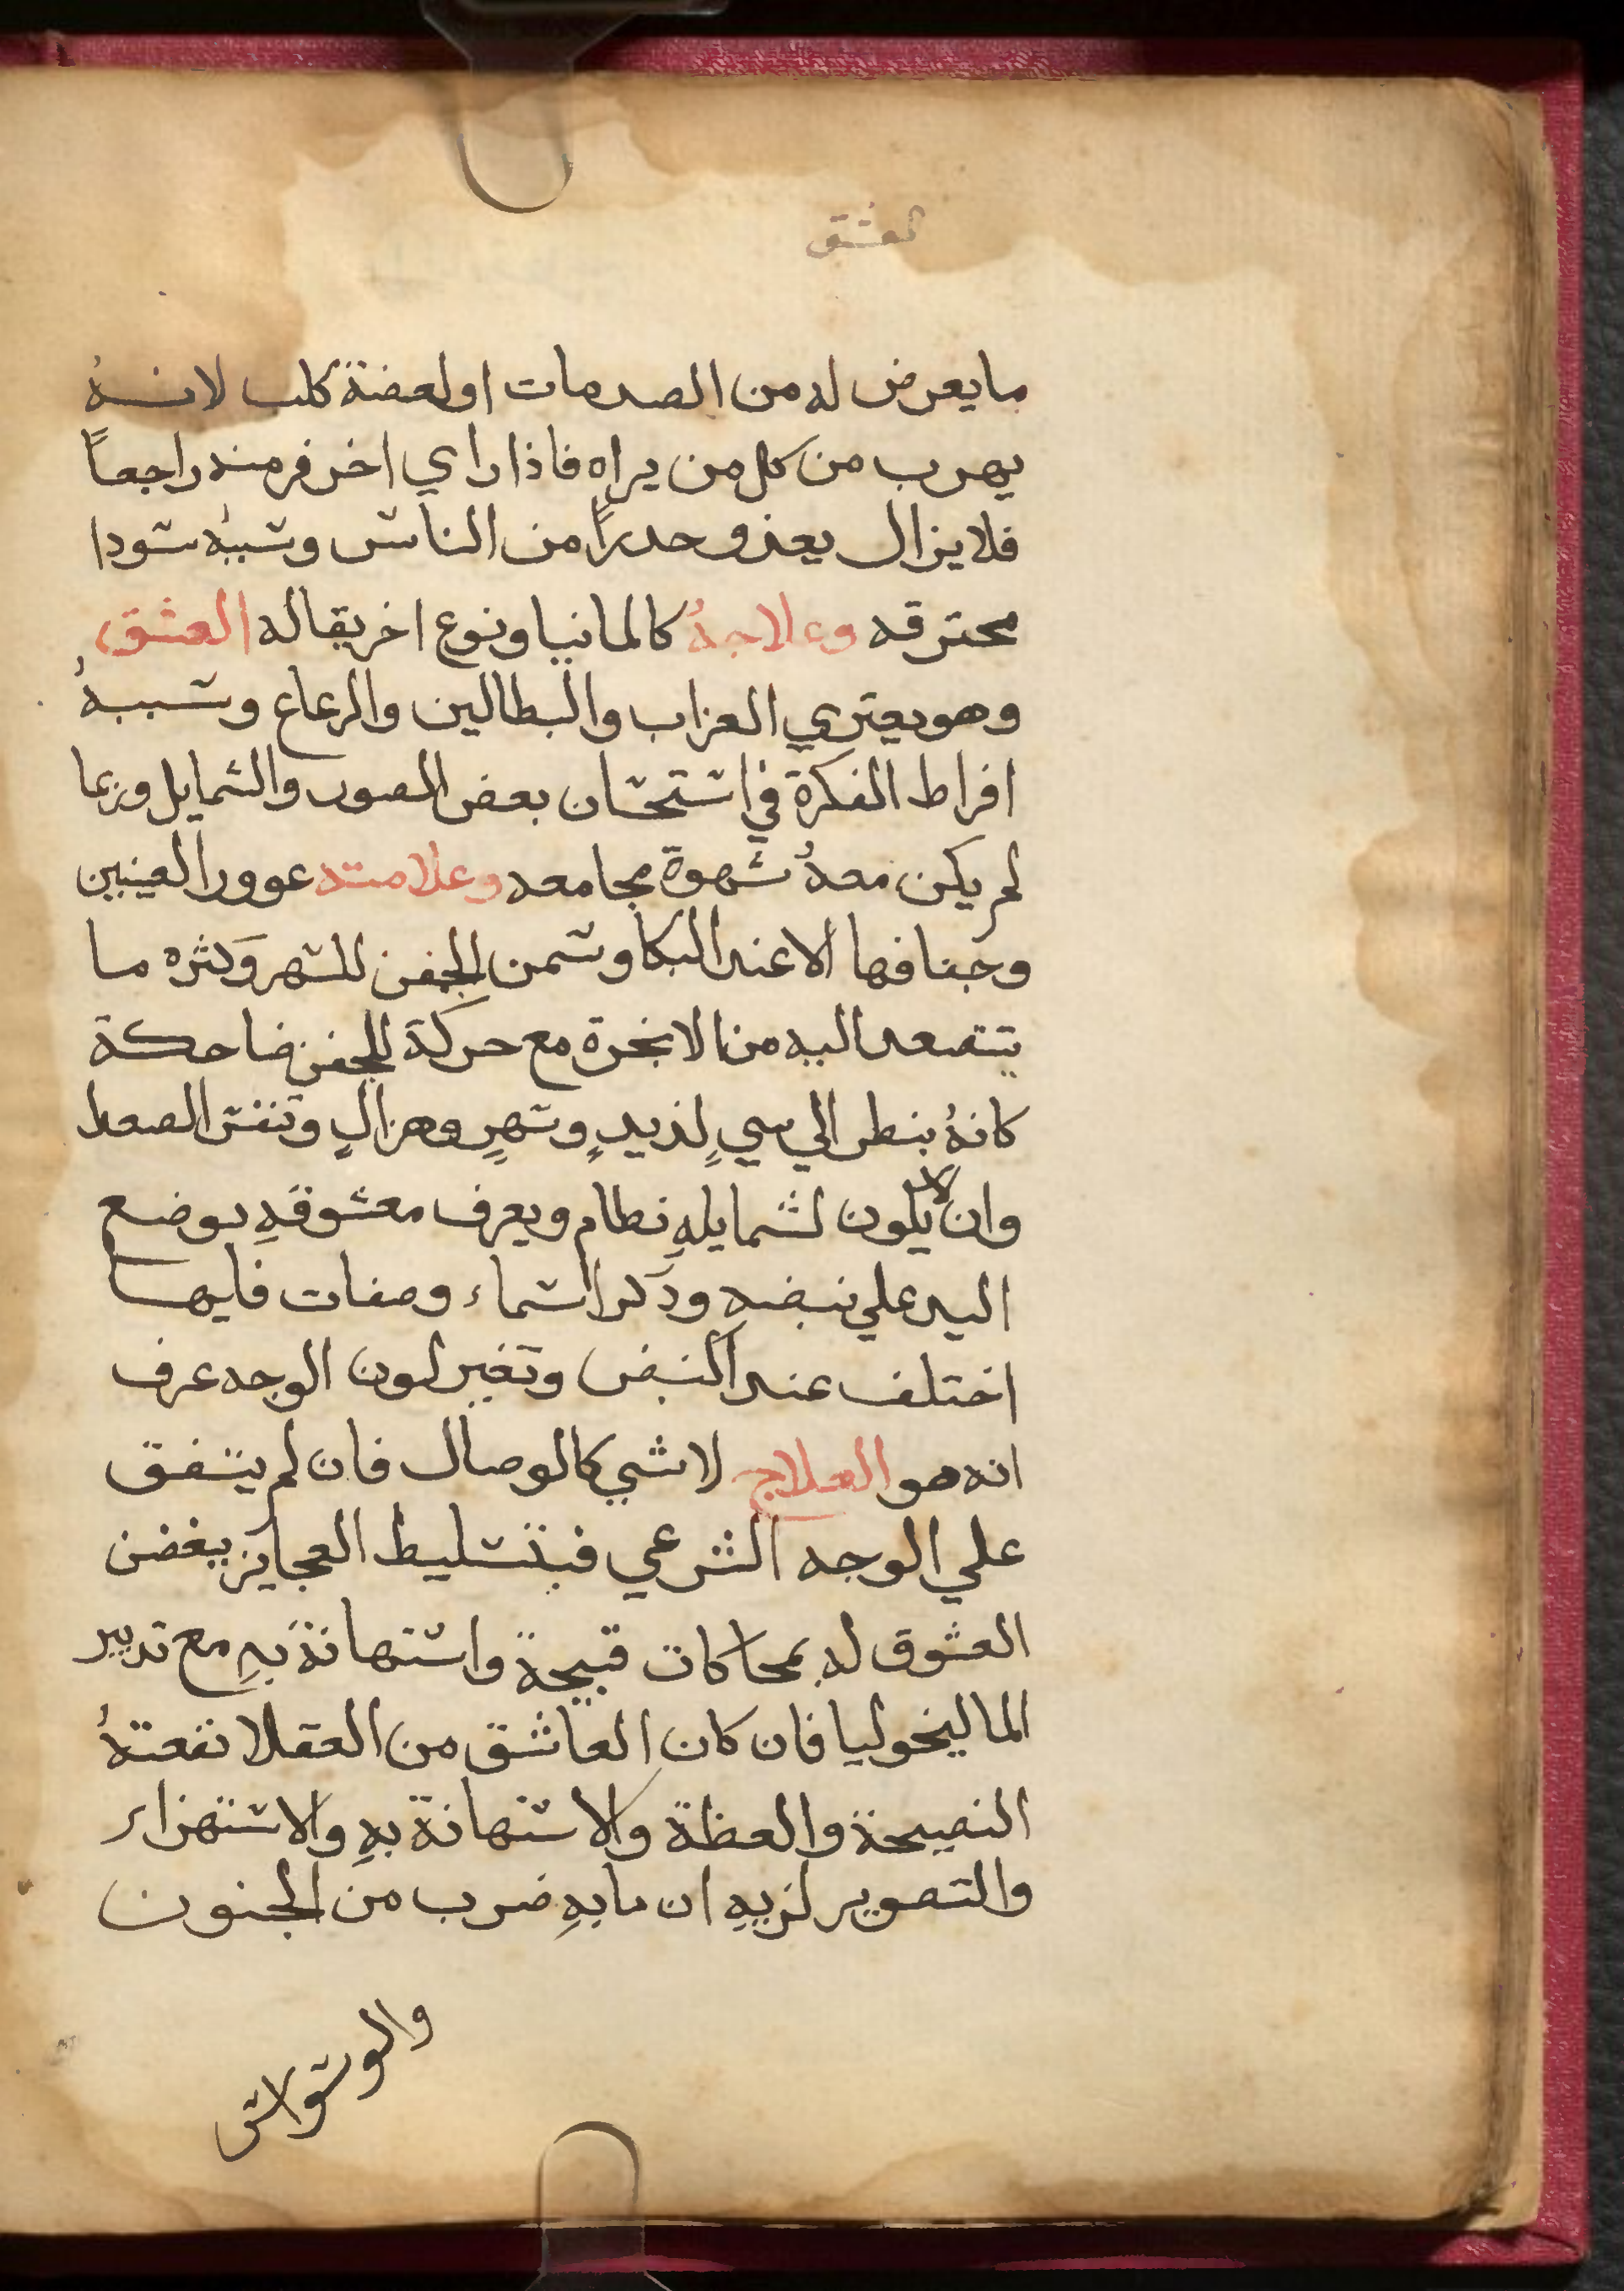 العشق
ما يعرض له من الصدمات او لعضة كلب لانهُ
يهرب من كل من يراه فاذا راي اخر فر منه راجعاً
فلا يزال يعذو حدراً من الناس وسببهُ سودا
محترقه وعلاجهُ كالمانيا ونوع اخر يقاله العشق
وهو يعتري العزاب والبطالين والرعاع وسببهُ
افراط الفكرة في استحسان بعض الصور والشمايل وربما
لم يكن معهُ شهوة مجامعه وعلامته عوور العينين
وجفافها الا عند البكا وسمن الجفن للسهر وكثره ما
يتصعد اليه من الابخرة مع حركة للجفن ضاحكة
كانهُ ينطر الي سيٍ لذيدٍ وسهرٍ وهزالٍ وتنفس الصعدا
وان لا يكون لشمايلهِ نطام ويعرف معشوقهِ بوضع
اليد علي نبضهِ ودكر اسماء وصفات فايها
اختلف عند النبض وتغير لون الوجه عرف
انه هو العلاج لا شي كالوصال فان لم يتفق
علي الوجه الشرعي فبتسليط العجايز يبغضن
العشوق له بمحاكات قبيحة واستهانة بهِ مع تدبير
الماليخوليا فان كان العاشق من العقلا نفعتهُ
النصيحة والعظة والاستهانة بهِ والاستهزاء
والتصوير لزيهِ ان ما بهِ ضرب من الجنون
والوسواس